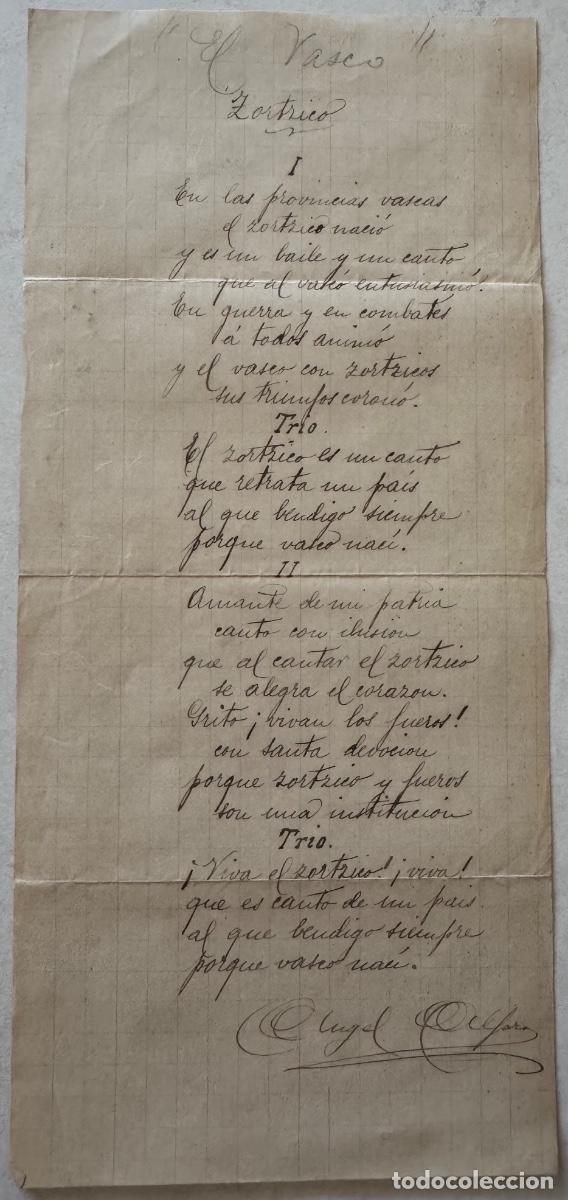 " El Vasco "
Zortzico
I
En las provincias vascas
el zortzico nació
y es un baile y un canto
que al vasco entusiasmó.
En guerra y en combates
á todos animó
y el vasco con zortzicos
sus triunfos coronó.
Trio.
El zortzico es un canto
que retrata un país
al que bendigo siempre
porque vasco nací.
II
Amante de mi patria
canto con ilusión
que al cantar el zortzico
se alegra el corazon.
Grito ¡vivan los fueros!
con santa devocion
porque zortzico y fueros
son una institución
Trio.
¡Viva el zortzico! ¡viva!
que es canto de un pais
al que bendigo siempre
porque vasco nací.
Angel Alfaro
todocoleccion